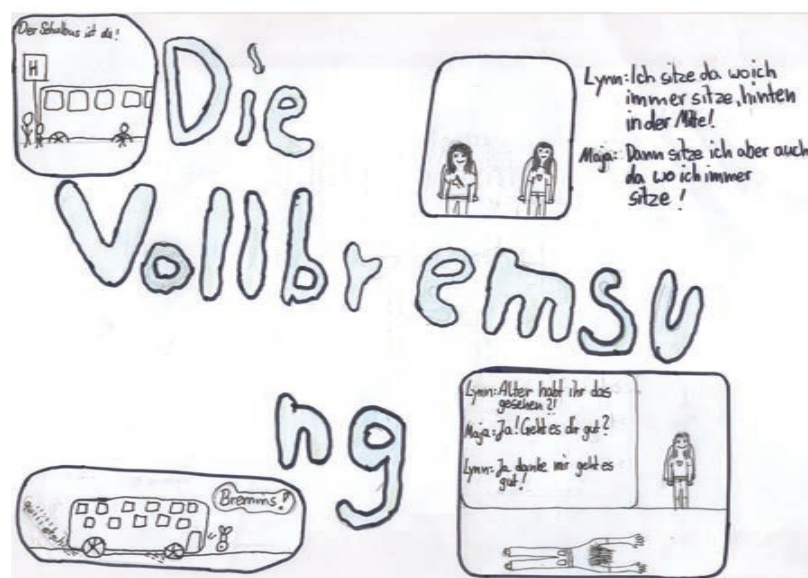 Der Schulbus ist da!
H
Die
Vollbremsu
ng
Lynn: Ich sitze da wo ich
immer sitze, hinten
in der Mitte!
Maja: Dann sitze ich aber auch
da wo ich immer
sitze!
Bremms!
Lynn: Alter habt ihr das
gesehen?!
Maja: Ja! Geht es dir gut?
Lynn: Ja danke mir geht es
gut!